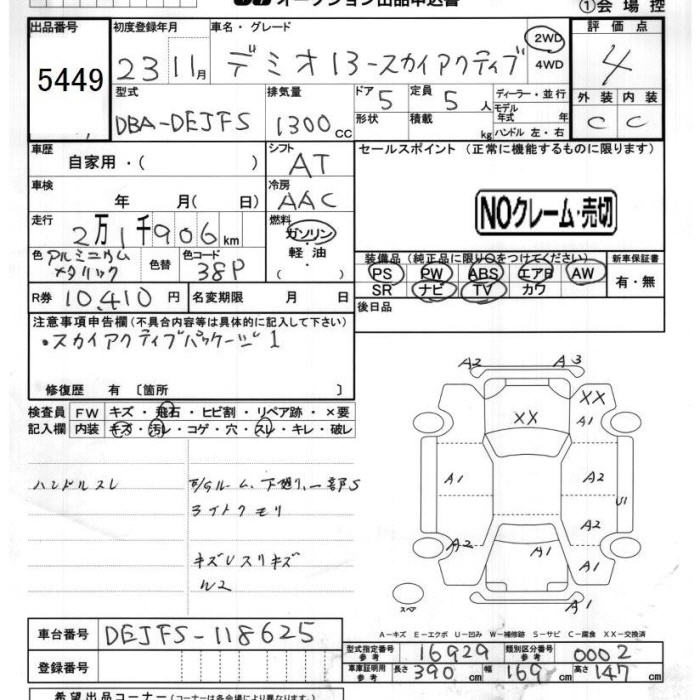 オークション出品申込書 ①会場控
出品番号 初度登録年月 車名・グレード 評価点
5449 23 11月 デミオ 13-スカイアクティブ 2WD 4WD 4
型式 排気量 ドア 5 定員 5人 ディーラー・並行 外装 内装
DBA-DEJFS 1300cc 形状 積載 kg モデル年式 年 ハンドル 左・右 C C
車歴 自家用・( ) シフト AT セールスポイント (正常に機能するものに限ります)
車検 年 月( 日) 冷房 AAC
NOクレーム・売切
走行 2万1千906km 燃料 ガソリン・軽油・
色 アルミニウムメタリック 色替 色コード 38P 装備品 (純正品に限り○をつけてください) 新車保証書
PS PW ABS エアB AW 有・無
SR ナビ TV カワ
R券 10,410円 名変期限 月 日 後日品
注意事項申告欄 (不具合内容等は具体的に記入して下さい)
・スカイアクティブパッケージ1
修復歴 有 〔箇所 〕
検査員 FW キズ・飛石・ヒビ割・リペア跡・×要
記入欄 内装 キズ・汚レ・コゲ・穴・スレ・キレ・破レ
A2 A3
XX
XX A1
ハンドルスレ
A1 A2 U1
ライトクモリ A2
A2 A1 A1
キズレスリキズ
W2
A1
スペア
A-キズ E-エクボ U-凹み W-補修跡 S-サビ C-腐食 XX-交換済
車台番号 DEJFS-118625
型式指定番号 参考 16929 類別区分番号 参考 0002
登録番号 車庫証明用 参考 長さ 390cm 幅 169cm 高さ 147cm
希望出品コーナー (コーナーは各会場により異なります)